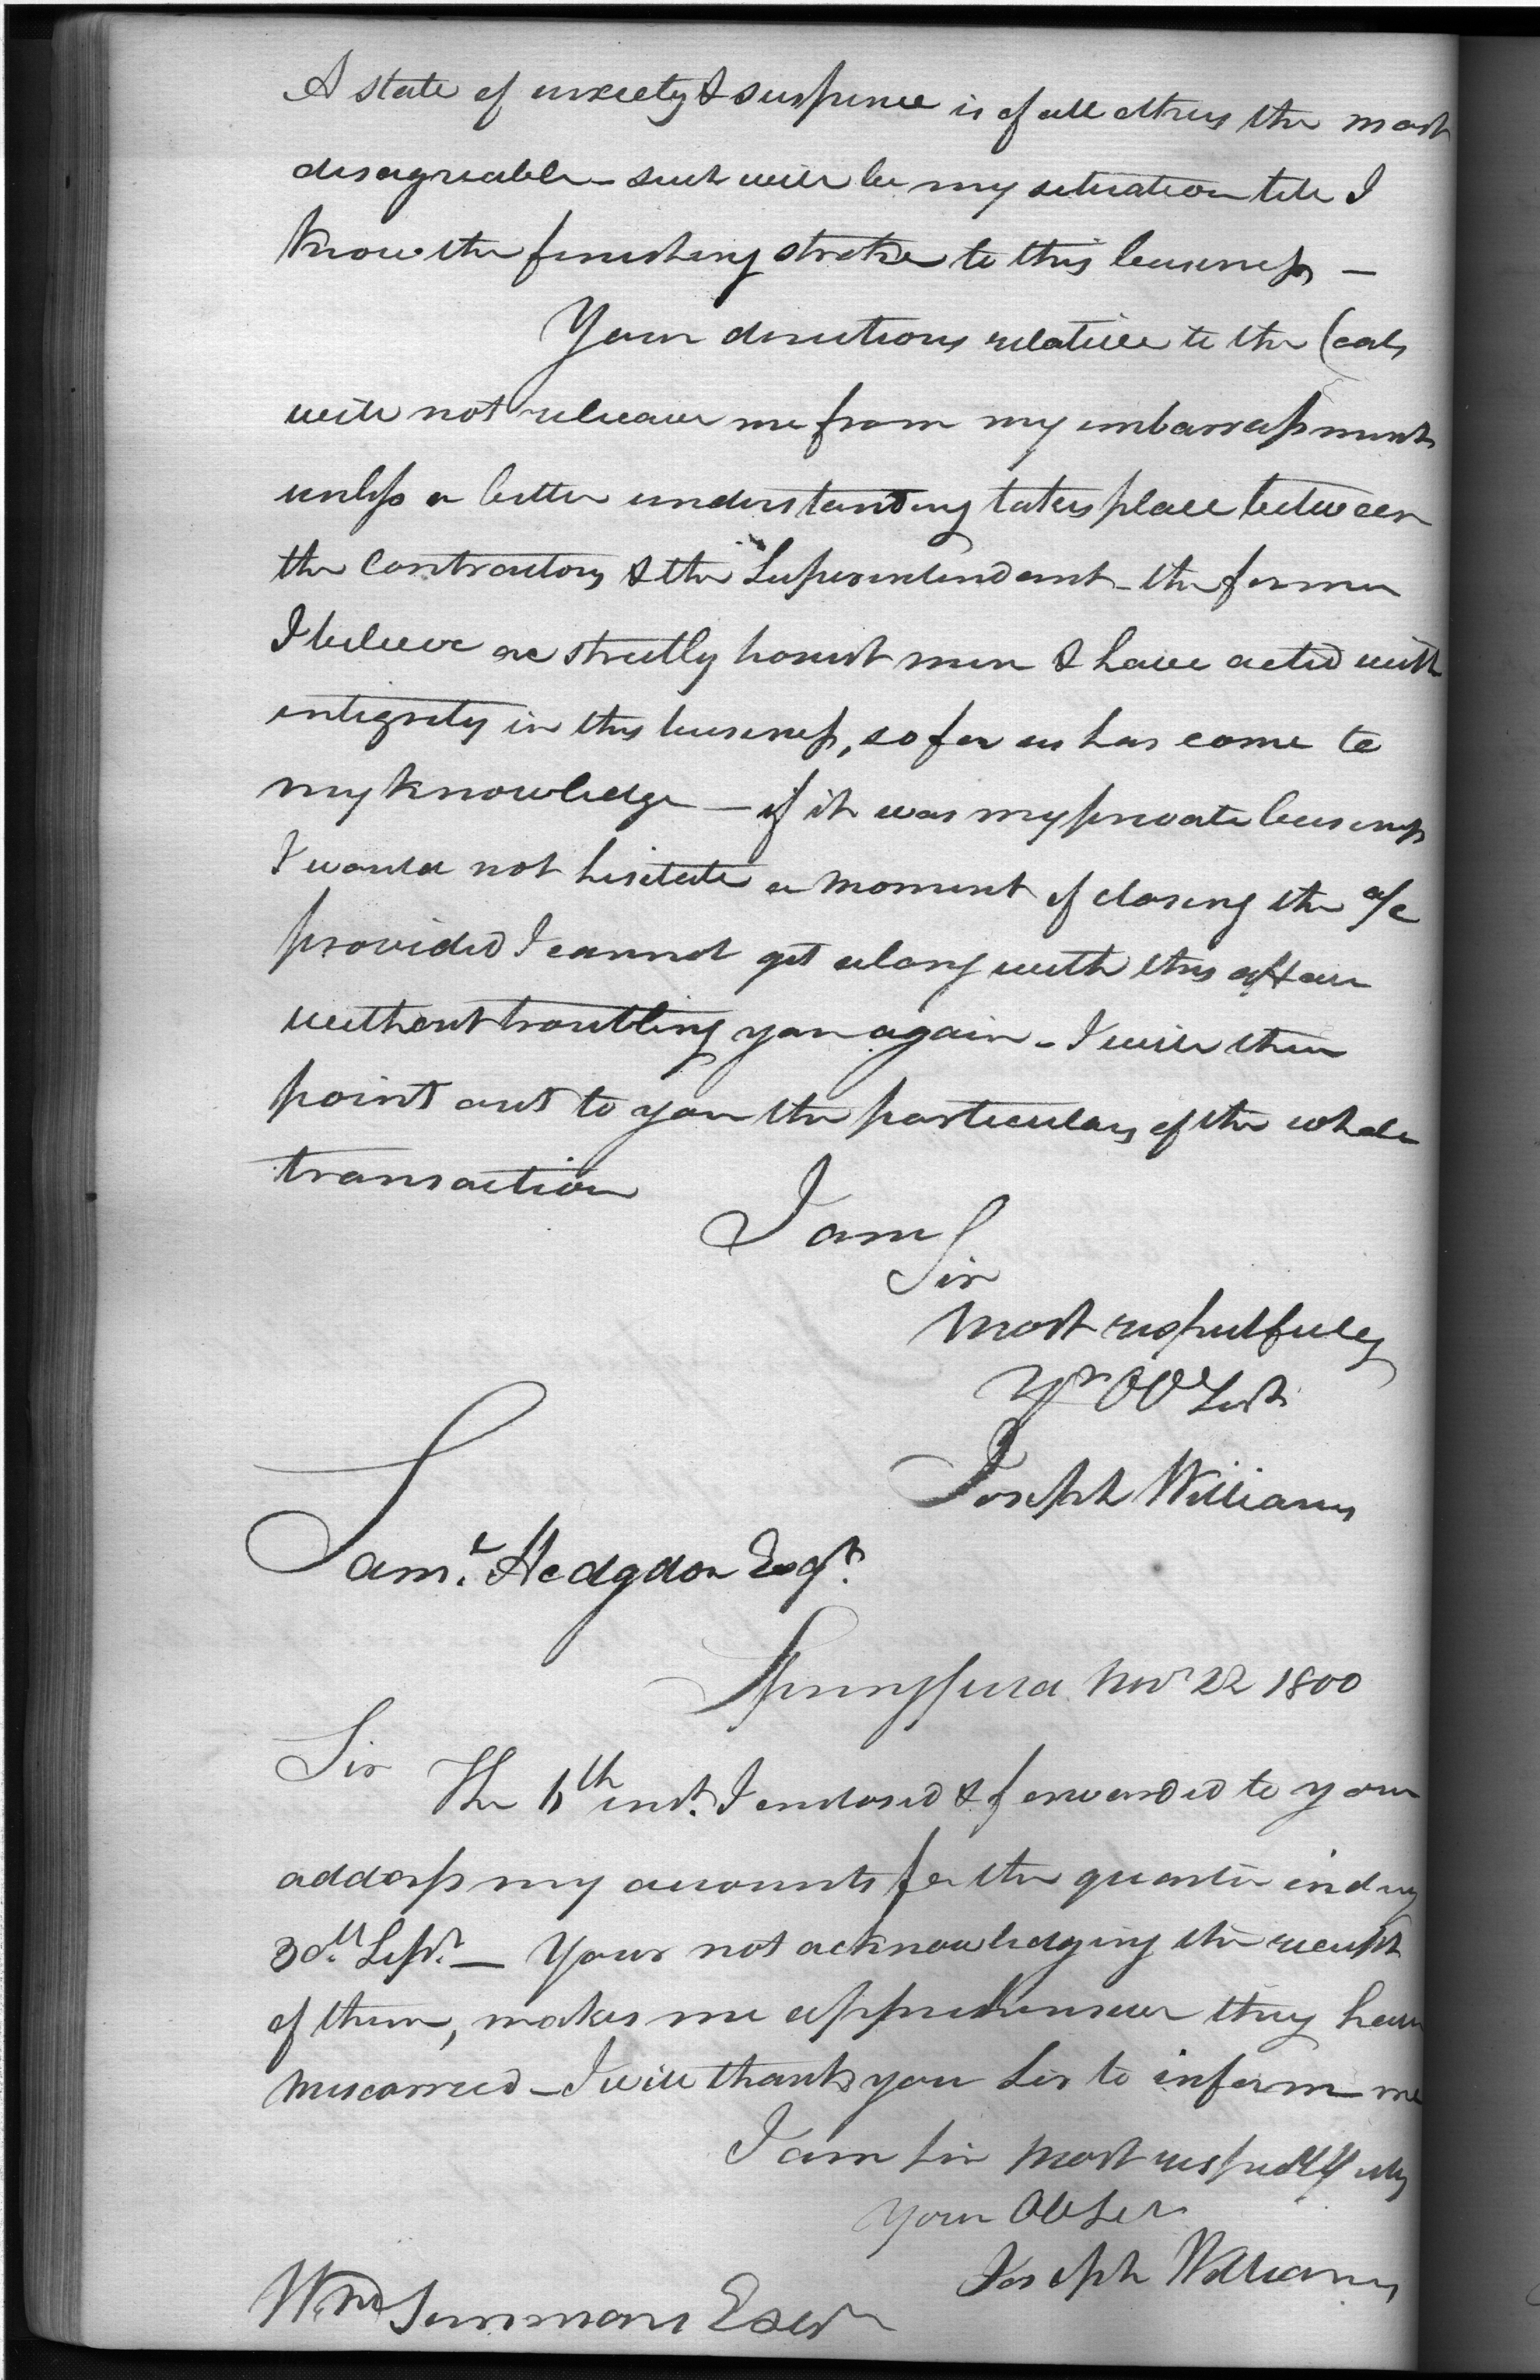 A state of anxiety & suspence is of all others the most
disagreeable – such will be my situation till I
know the finishing stroke to this business –
Your directions relative to the Coals
will not releave me from my embarrassments
unless a better understanding takes place between
the Contractors & the Superintendant – the former
I believe are strictly honest men & have acted with
integrity in this business, so far as has come to
my knowledge – if it was my private business
I would not hesitate a moment of closing the a/c
provided I cannot get along with this affair
without troubling you again – I will then
point out to you the particulars of the whole
transaction
I am
Sir
most respectfully
Yr Ob Sert
Joseph Williams
Saml. Hodgdon Esqr.
Springfield Novr 22 1800
Sir
The th inst. I enclosed & forwarded to your
address my accounts for the quarter ending
30th. Sepr. – Your not acknowledging the receipt
of them, makes me apprehensive they have
miscarried – I will thank you Sir to inform me
I am Sir most respectfully
Your Ob Ser
Joseph Williams
Wm Simmons Esqr